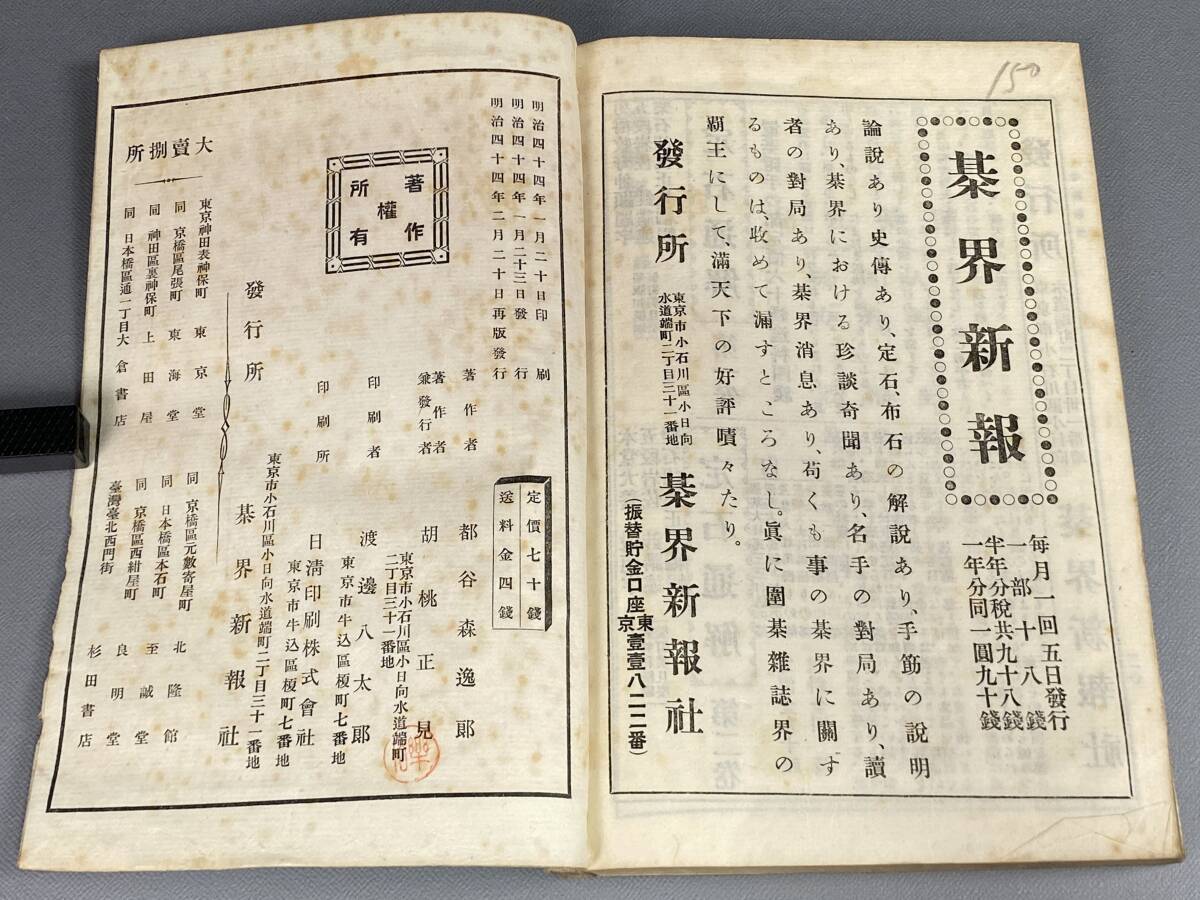 150
棊界新報
每月一回五日發行
一部十八錢
半年分稅共九十八錢
一年分同一圓九十錢
論說あり史傳あり、定石、布石の解說あり、手筋の說明
あり、棊界における珍談奇聞あり、名手の對局あり、讀
者の對局あり、棊界消息あり、苟くも事の棊界に關す
るものは、收めて漏すところなし。眞に圍棊雜誌界の
覇王にして、滿天下の好評嘖々たり。
發行所
東京市小石川區小日向
水道端町二丁目三十一番地
棊界新報社
(振替貯金口座東京壹壹八二二番)
明治四十四年一月二十日印刷
明治四十四年一月二十三日發行
明治四十四年二月二十日再版發行
著作權所有
定價七十錢
送料金四錢
著作者 都谷森逸郞
著作者兼發行者 胡桃正見
東京市小石川區小日向水道端町
二丁目三十一番地
印刷者 渡邊八太郞
東京市牛込區榎町七番地
印刷所 日淸印刷株式會社
東京市牛込區榎町七番地
發行所
東京市小石川區小日向水道端町二丁目三十一番地
棊界新報社
大賣捌所
東京神田表神保町 東京堂
同 京橋區尾張町 東海堂
同 神田區裏神保町 上田屋
同 日本橋區通一丁目 大倉書店
同 京橋區元數寄屋町 北隆館
同 日本橋區本石町 至誠堂
同 京橋區西紺屋町 良明堂
臺灣臺北西門街 杉田書店